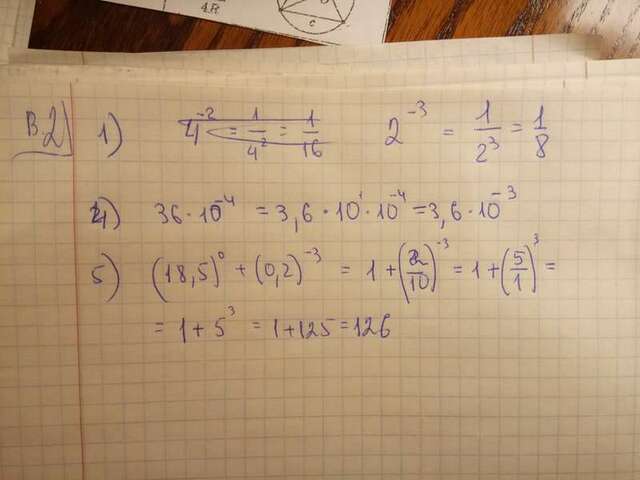 4R
c
В.2
1) 4⁻² = 1/4² = 1/16 2⁻³ = 1/2³ = 1/8
4) 36·10⁻⁴ = 3,6·10¹·10⁻⁴ = 3,6·10⁻³
5) (18,5)⁰ + (0,2)⁻³ = 1 + (2/10)⁻³ = 1 + (5/1)³ =
= 1 + 5³ = 1 + 125 = 126